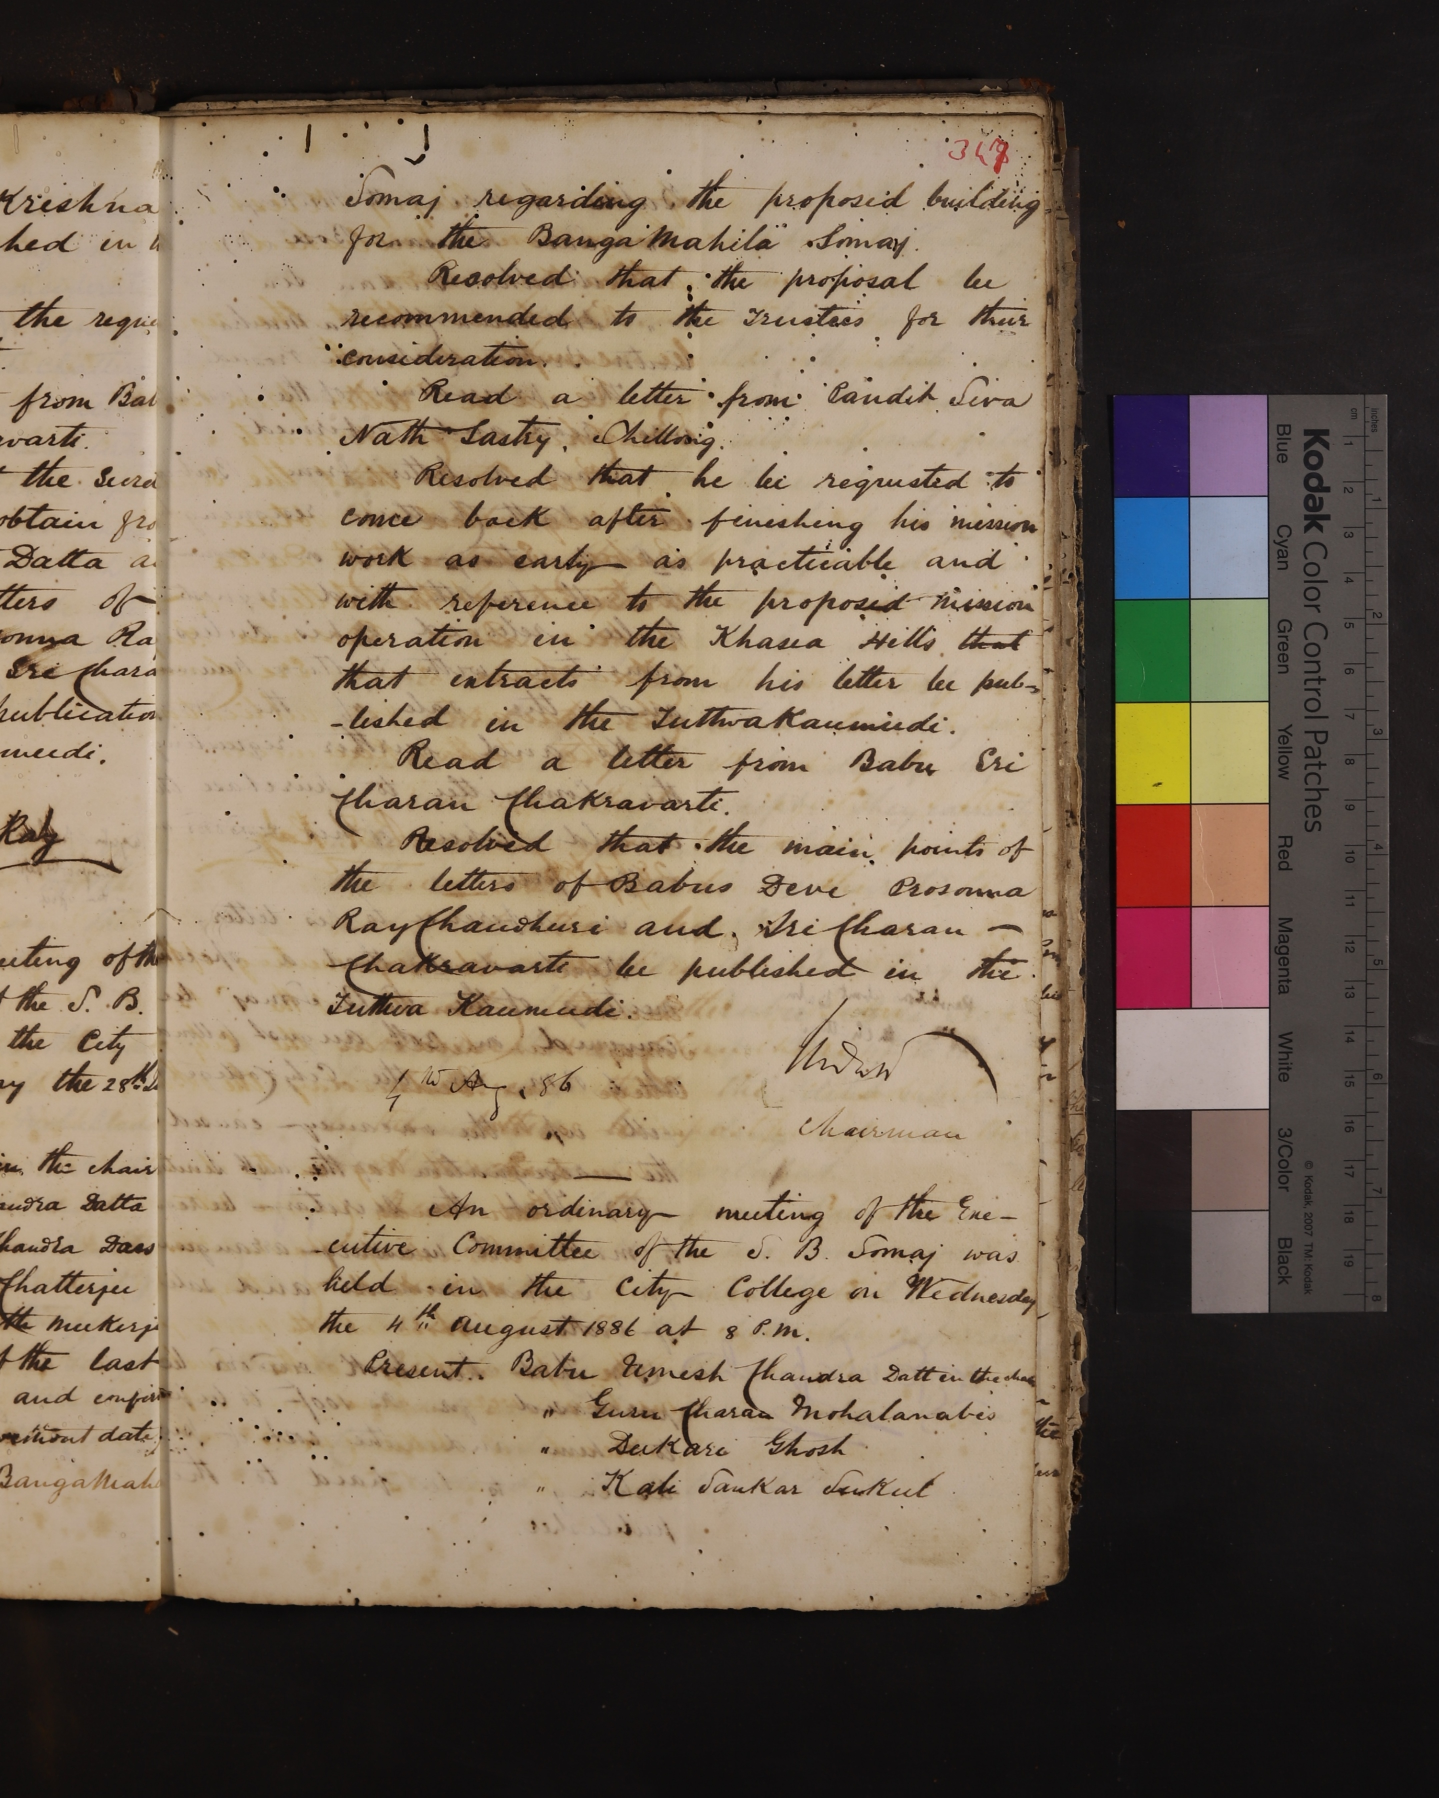 Krishna
hed in
the reque
from Bab
varti.
the Secre
obtain fro
Datta a
tters of
onna Ra
Sri Chara
publication
mudi.
Ray
eeting of the
t the S. B.
the City
ay the 28th
in the chair
andra Datta
handra Dass
Chatterjee
th Mukerje
f the last
and confir
date
BangaMahi
347
Somaj regarding the proposed building
for the Banga Mahila Somaj.
Resolved that the proposal be
recommended to the Trustees for their
consideration.
Read a letter from Pandit Siva
Nath Sastry, Shillong.
Resolved that he be requested to
come back after finishing his mission
work as early as practicable and
with reference to the proposed mission
operation in the Khasea Hills that
that extracts from his letter be pub-
-lished in the TuttwaKaumudi.
Read a letter from Babu Sri
Charan Chakravarti.
Resolved that the main points of
the letters of Babus Devi Prosonna
RayChaudhuri and Sri Charan -
Chakravarti be published in the
Tuttwa Kaumudi.
4th Aug. 86
Chairman
An ordinary meeting of the Exe-
-cutive Committee of the S. B. Somaj was
held in the City College on Wednesday
the 4th August 1886 at 8 P.M.
Present. Babu Umesh Chandra Datt in the chair
" Guru Charan Mohalanabis
" Dukari Ghosh
" Kali Sankar Sukul
Kodak Color Control Patches
Blue Cyan Green Yellow Red Magenta White 3/Color Black
© Kodak, 2007 TM: Kodak
inches 1 2 3 4 5 6 7 8
cm 1 2 3 4 5 6 7 8 9 10 11 12 13 14 15 16 17 18 19